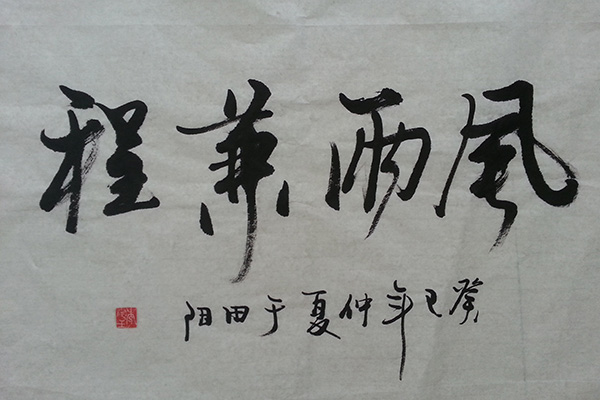 風雨兼程
癸巳年仲夏于田阻